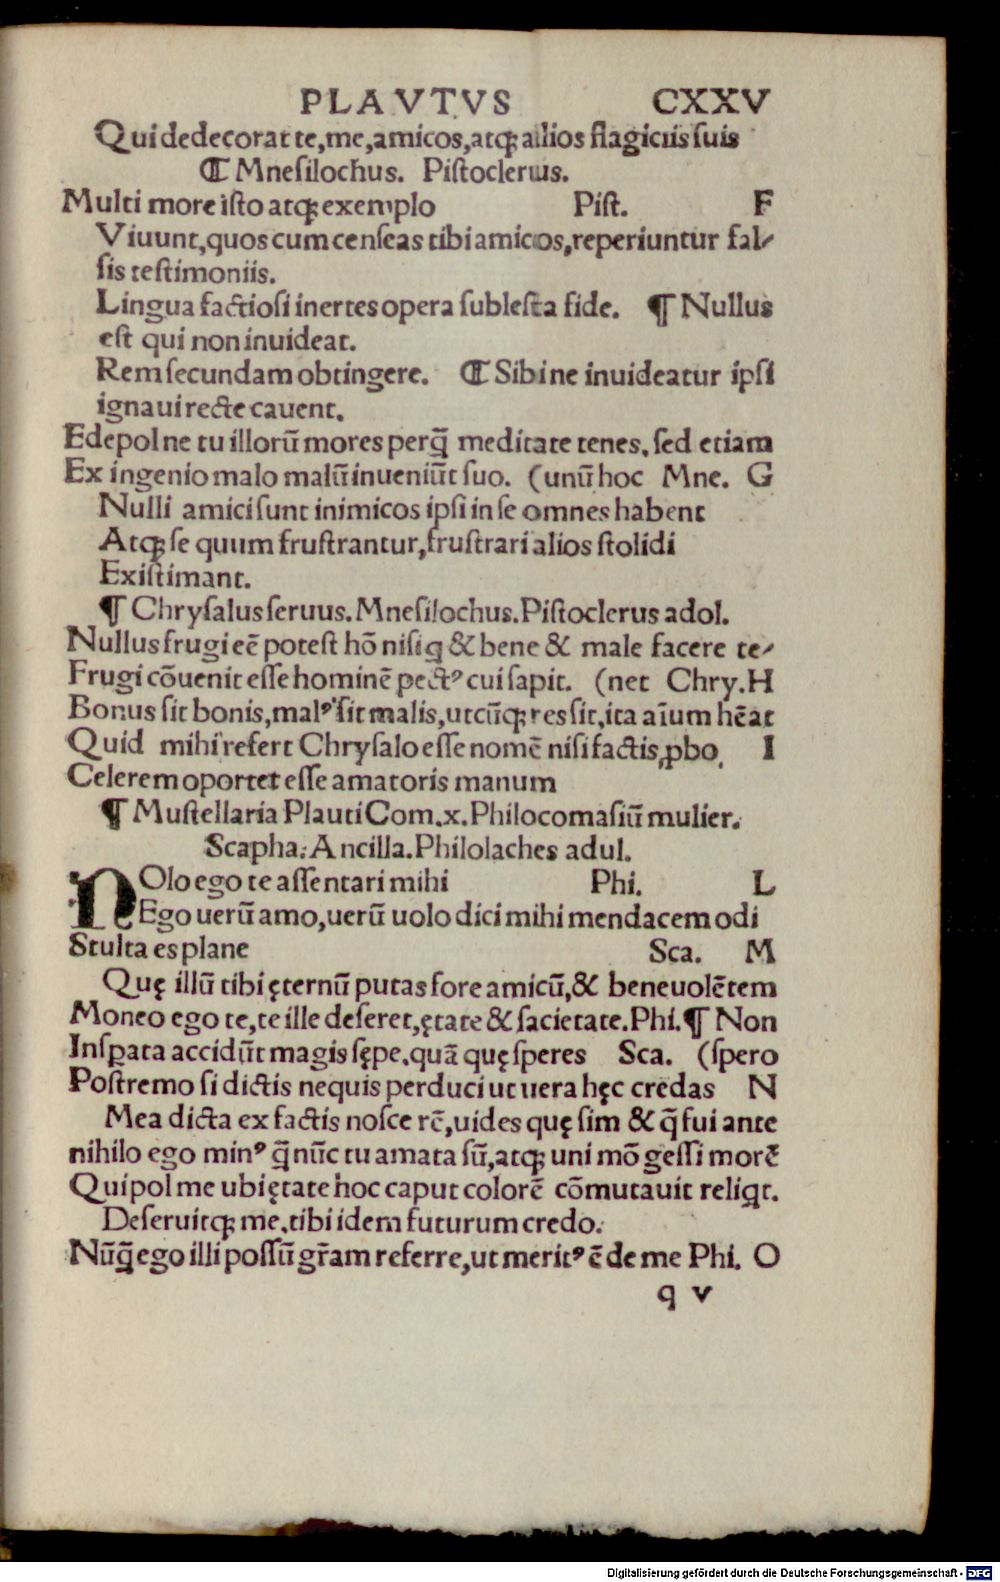 PLAVTVS CXXV
Qui dedecorat te, me, amicos, atq; alios flagiciis suis
¶ Mnesilochus. Pistoclerus.
Multi more isto atq; exemplo Pist. F
Viuunt, quos cum censeas tibi amicos, reperiuntur fal-
sis testimoniis.
Lingua factiosi inertes opera sublesta fide. ¶ Nullus
est qui non inuideat.
Rem secundam obtingere. ¶ Sibi ne inuideatur ipsi
ignaui recte cauent.
Edepol ne tu illorū mores perq̄ meditate tenes. sed etiam
Ex ingenio malo malū inueniūt suo. (unū hoc Mne. G
Nulli amici sunt inimicos ipsi in se omnes habent
Atq; se quum frustrantur, frustrari alios stolidi
Existimant.
¶ Chrysalus seruus. Mnesilochus. Pistoclerus adol.
Nullus frugi eē potest hō nisi q & bene & male facere te-
Frugi cōuenit esse hominē pectꝰ cui sapit. (net Chry. H
Bonus sit bonis, malꝰ sit malis, utcūq; res sit, ita aīum hēat
Quid mihi refert Chrysalo esse nomē nisi factis ꝓbo I
Celerem oportet esse amatoris manum
¶ Mustellaria Plauti Com. x. Philocomasiū mulier.
Scapha. Ancilla. Philolaches adul.
NOlo ego te assentari mihi Phi. L
Ego uerū amo, uerū uolo dici mihi mendacem odi
Stulta es plane Sca. M
Quę illū tibi ęternū putas fore amicū, & beneuolētem
Moneo ego te, te ille deseret, ętate & sacietate. Phi. ¶ Non
Insꝑata accidūt magis sępe. quā quę speres Sca. (spero
Postremo si dictis nequis perduci ut uera hęc credas N
Mea dicta ex factis nosce rē, uides quę sim & q̄ fui ante
nihilo ego minꝰ q̄ nūc tu amata sū, atq; uni mō gessi morē
Qui pol me ubi ętate hoc caput colorē cōmutauit reliqt.
Deseruitq; me. tibi idem futurum credo.
Nūq̄ ego illi possū gr̄am referre, ut meritꝰ ē de me Phi. O
q v
Digitalisierung gefördert durch die Deutsche Forschungsgemeinschaft - DFG